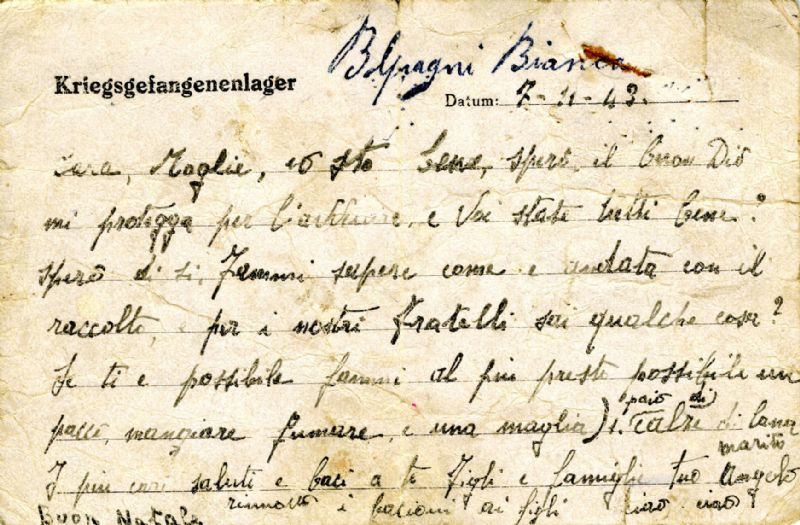 Bianca
Kriegsgefangenenlager
Datum: 7-11-43.
Cara, Moglie, io sto bene, spero, il buon Dio
mi protegga per l'avvenire, e Voi state tutti bene?
spero di si, Fammi sapere come e andata con il
raccolto, e per i nostri Fratelli sai qualche cosa?
Se ti e possibile fammi al piu presto possibile un
pacco, mangiare fumare, e una maglia) 1. paio di) Calze di lana
I piu cari saluti e baci a te Figli e famiglia tuo marito Angelo
Buon Natale i bacioni ai figli ciao ciao